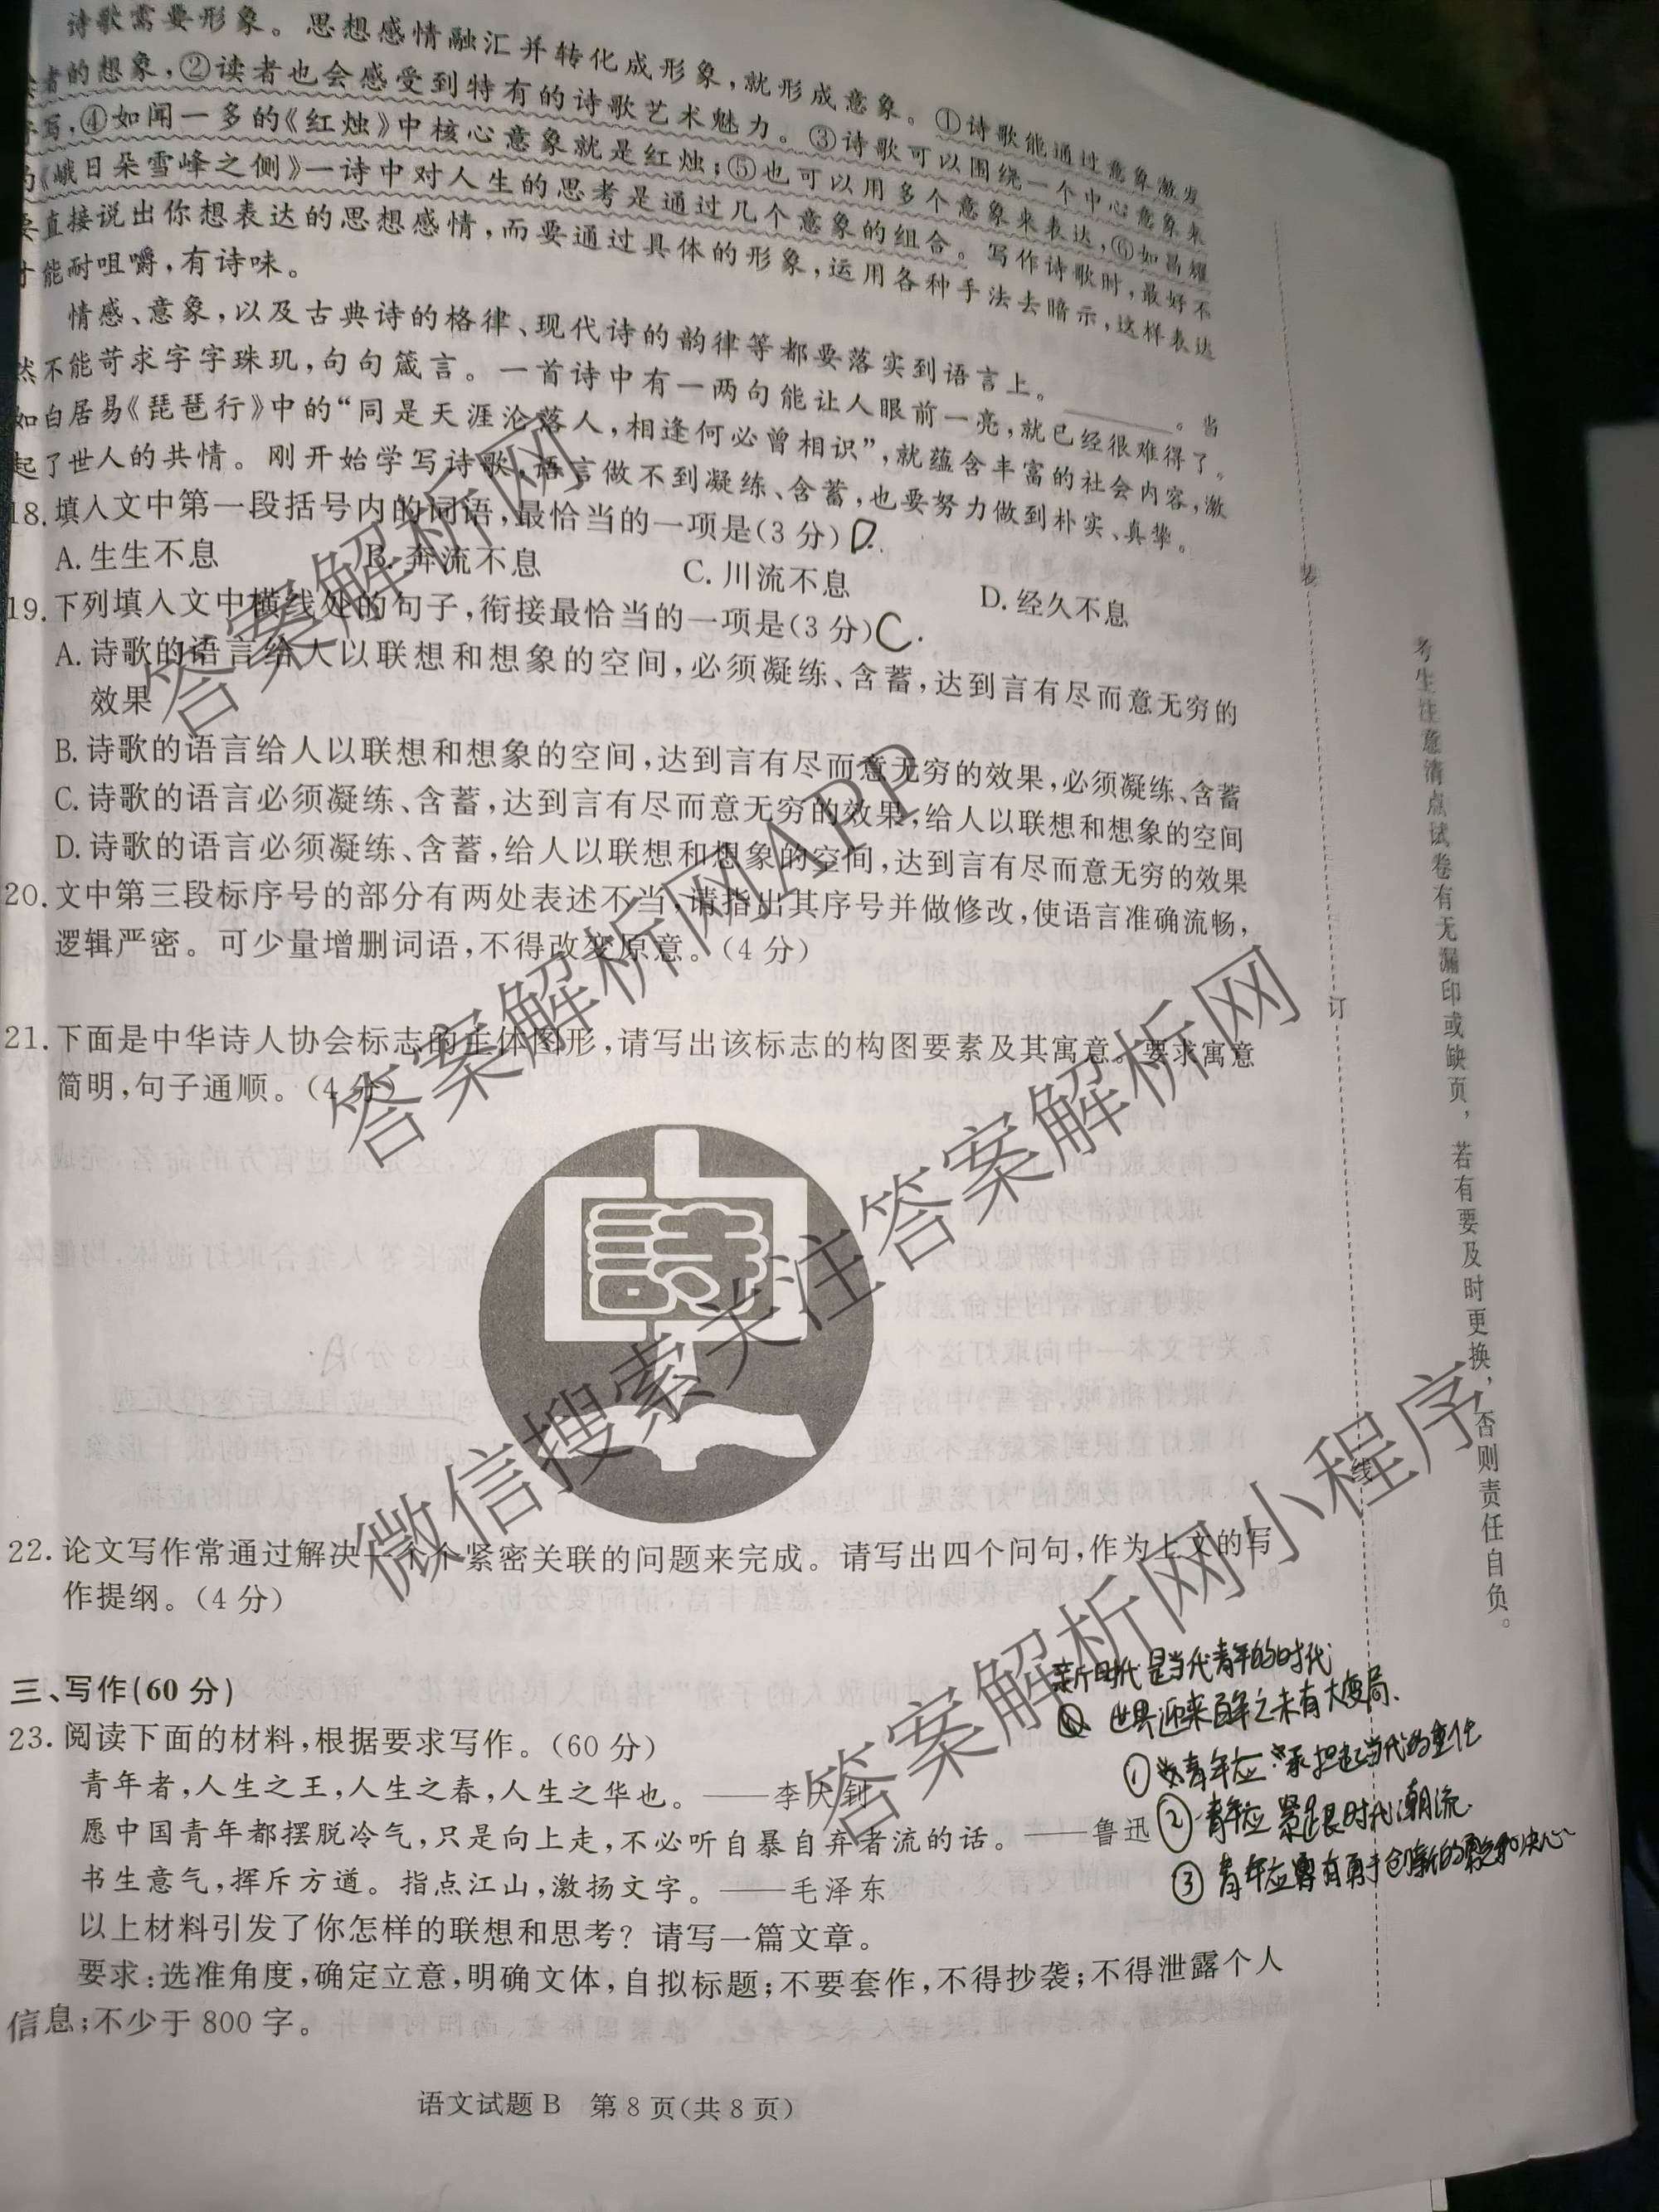 诗歌需要形象。思想感情融汇并转化成形象,就形成意象。①诗歌能通过意象激发
者的想象,②读者也会感受到特有的诗歌艺术魅力。③诗歌可以围绕一个中心意象来
写,④如闻一多的《红烛》中核心意象就是红烛;⑤也可以用多个意象来表达,⑥如昌耀
的《峨日朵雪峰之侧》一诗中对人生的思考是通过几个意象的组合。写作诗歌时,最好不
要直接说出你想表达的思想感情,而要通过具体的形象,运用各种手法去暗示,这样表达
才能耐咀嚼,有诗味。
情感、意象,以及古典诗的格律、现代诗的韵律等都要落实到语言上。______。当
然不能苛求字字珠玑,句句箴言。一首诗中有一两句能让人眼前一亮,就已经很难得了。
如白居易《琵琶行》中的“同是天涯沦落人,相逢何必曾相识”,就蕴含丰富的社会内容,激
起了世人的共情。刚开始学写诗歌,语言做不到凝练、含蓄,也要努力做到朴实、真挚。
18.填入文中第一段括号内的词语,最恰当的一项是(3分)D.
A.生生不息 B.奔流不息 C.川流不息 D.经久不息
19.下列填入文中横线处的句子,衔接最恰当的一项是(3分)C.
A.诗歌的语言给人以联想和想象的空间,必须凝练、含蓄,达到言有尽而意无穷的
效果
B.诗歌的语言给人以联想和想象的空间,达到言有尽而意无穷的效果,必须凝练、含蓄
C.诗歌的语言必须凝练、含蓄,达到言有尽而意无穷的效果,给人以联想和想象的空间
D.诗歌的语言必须凝练、含蓄,给人以联想和想象的空间,达到言有尽而意无穷的效果
20.文中第三段标序号的部分有两处表述不当,请指出其序号并做修改,使语言准确流畅,
逻辑严密。可少量增删词语,不得改变原意。(4分)
21.下面是中华诗人协会标志的主体图形,请写出该标志的构图要素及其寓意。要求寓意
简明,句子通顺。(4分)
詩
22.论文写作常通过解决一个个紧密关联的问题来完成。请写出四个问句,作为上文的写
作提纲。(4分)
三、写作(60分)
23.阅读下面的材料,根据要求写作。(60分)
青年者,人生之王,人生之春,人生之华也。——李大钊
愿中国青年都摆脱冷气,只是向上走,不必听自暴自弃者流的话。——鲁迅
书生意气,挥斥方遒。指点江山,激扬文字。——毛泽东
以上材料引发了你怎样的联想和思考?请写一篇文章。
要求:选准角度,确定立意,明确文体,自拟标题;不要套作,不得抄袭;不得泄露个人
信息;不少于800字。
语文试题B 第8页(共8页)
新时代是当代青年的时代
世界迎来百年之未有大变局.
①青年应承担起当代的重任
②青年应紧跟时代潮流.
③青年应要有勇于创新的和决心
装
订
线
考生注意清点试卷有无漏印或缺页,若有要及时更换,否则责任自负。
答案解析网
答案解析网APP
微信搜索关注答案解析网
答案解析网小程序